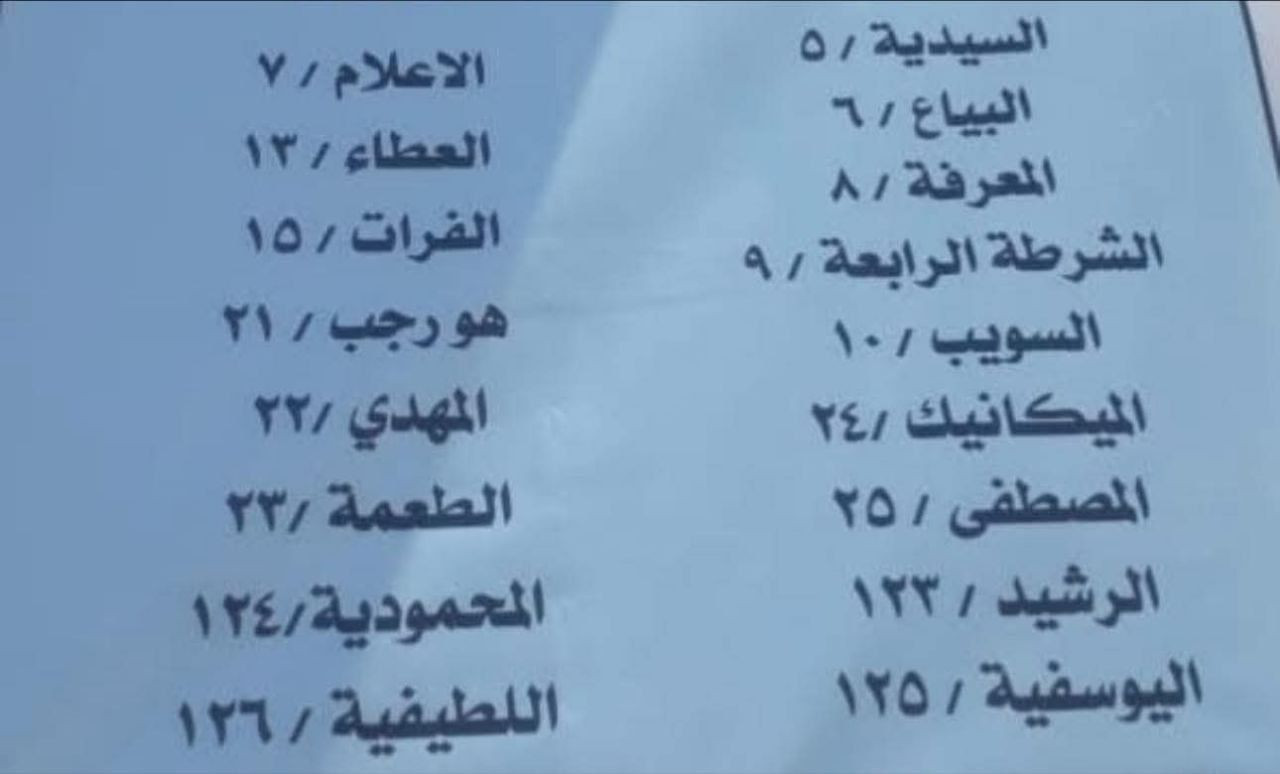 السيدية / ٥
البياع / ٦
المعرفة / ٨
الشرطة الرابعة / ٩
السويب / ١٠
الميكانيك /٢٤
المصطفى / ٢٥
الرشيد / ١٢٣
اليوسفية / ١٢٥
الاعلام / ٧
العطاء / ١٣
الفرات / ١٥
هور رجب / ٢١
المهدي /٢٢
الطعمة /٢٣
المحمودية/١٢٤
اللطيفية / ١٢٦